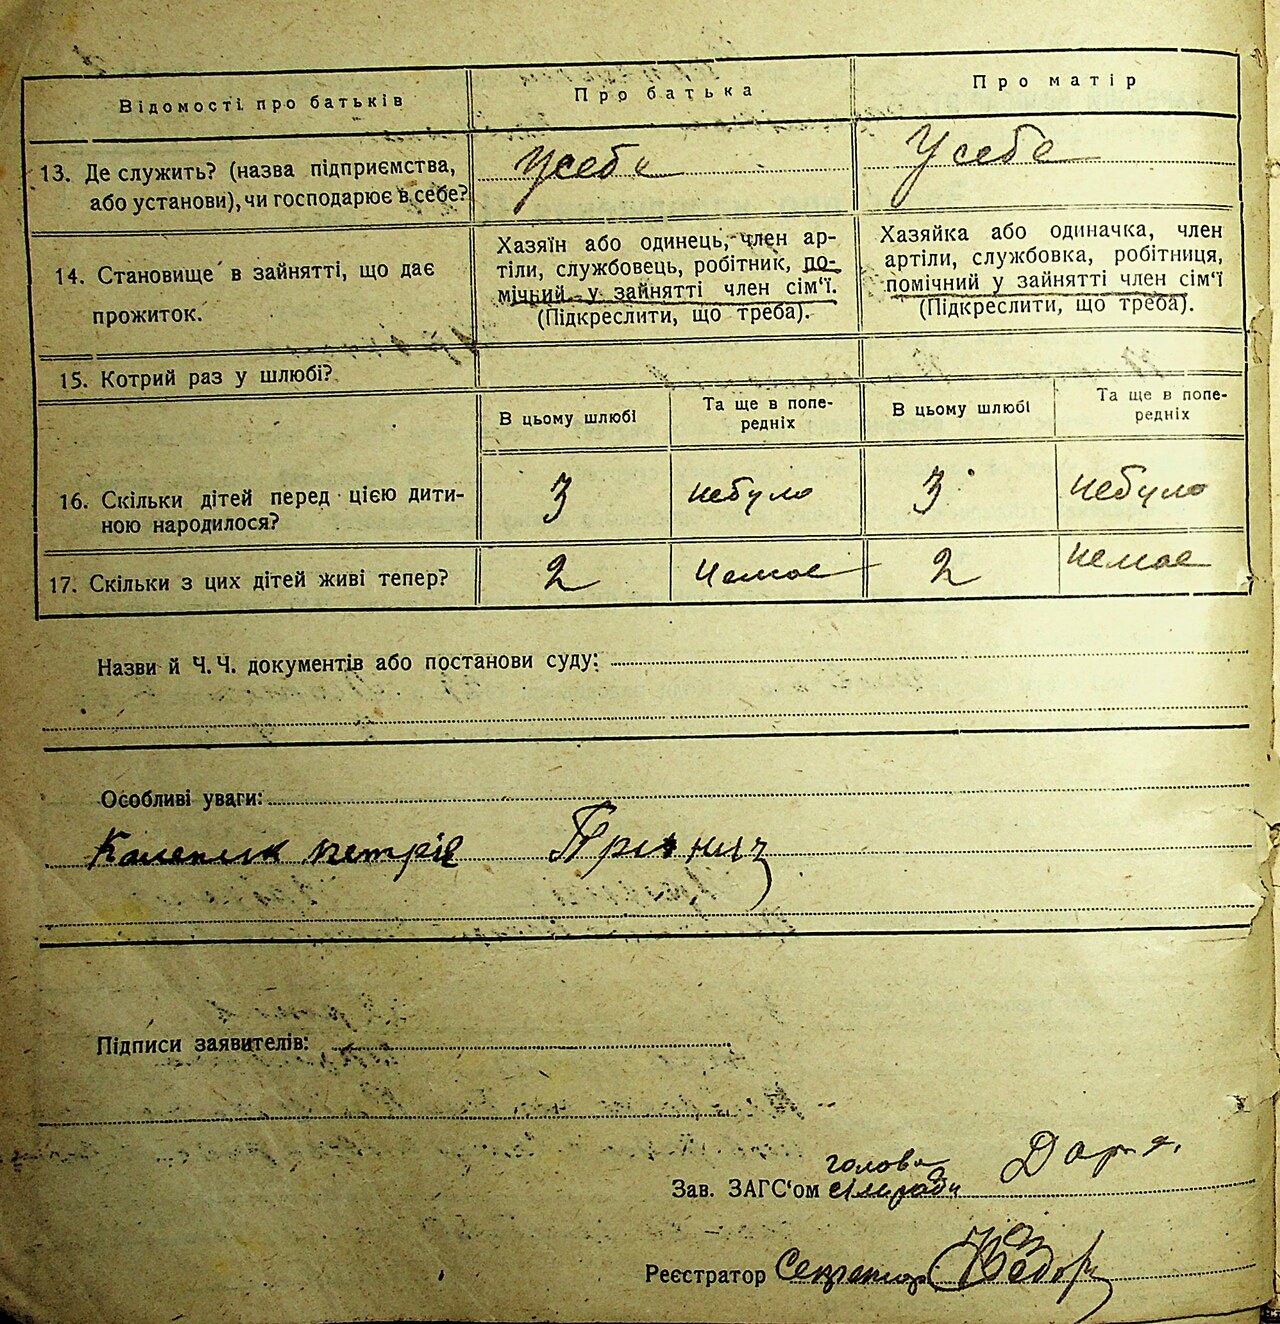 Відомості про батьків
Про батька
Про матір
13. Де служить? (назва підприємства, або установи), чи господарює в себе?
Усебе
Усебе
14. Становище в зайнятті, що дає прожиток.
Хазяїн або одинець, член ар-
тіли, службовець, робітник, по-
мічний у зайнятті член сім'ї.
(Підкреслити, що треба).
Хазяйка або одиначка, член
артіли, службовка, робітниця,
помічний у зайнятті член сім'ї
(Підкреслити, що треба).
15. Котрий раз у шлюбі?
В цьому шлюбі
Та ще в попе-
редніх
В цьому шлюбі
Та ще в попе-
редніх
16. Скільки дітей перед цією дити-
ною народилося?
3
небуло
3
небуло
17. Скільки з цих дітей живі тепер?
2
немає
2
немає
Назви й Ч.Ч. документів або постанови суду:
Особливі уваги:
Підписи заявителів:
голова
Зав. ЗАГС'ом сільради
Реєстратор Секретар